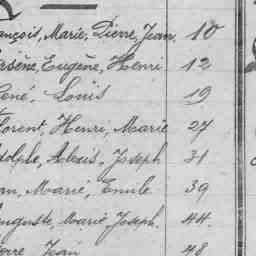 ançois, Marie, Pierre, Jean 10
rsène, Eugène, Henri 12
ené, Louis 19
lorent, Henri, Marie 27
dolphe, Alexis, Joseph 31
an, Marie, Emile 39
uguste, Marie Joseph. 44
erre, Jean 48